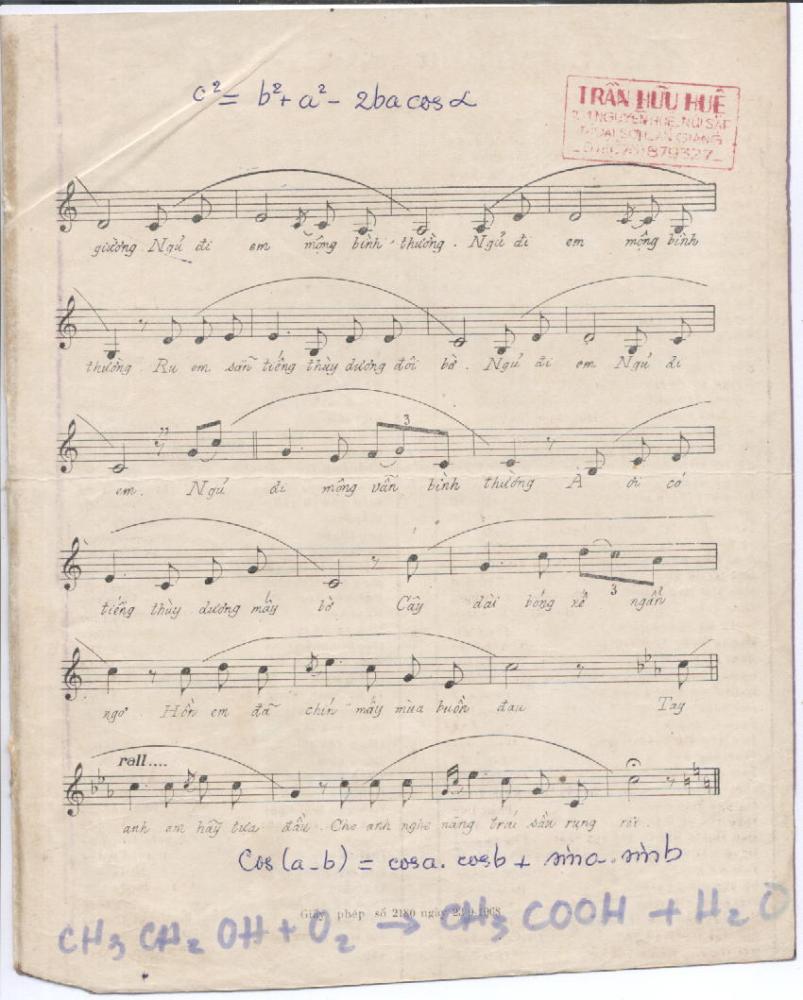 c² = b² + a² - 2ba cos α
TRẦN HỮU HUÊ
giường Ngủ đi em mộng bình thường. Ngủ đi em mộng bình
thường Ru em sẵn tiếng thùy dương đôi bờ. Ngủ đi em Ngủ đi
em. Ngủ đi mộng vẫn bình thường À ơi có
tiếng thùy dương mấy bờ Cây dài bóng xế ngẩn
ngơ Hồn em đã chín mấy mùa buồn đau Tay
rall....
anh em hãy tựa đầu. Cho anh nghe nặng trái sầu rụng rơi.
Cos(a-b) = cosa. cosb + sina. sinb
Giấy phép số 2180 ngày
CH₃ CH₂ OH + O₂ → CH₃ COOH + H₂O